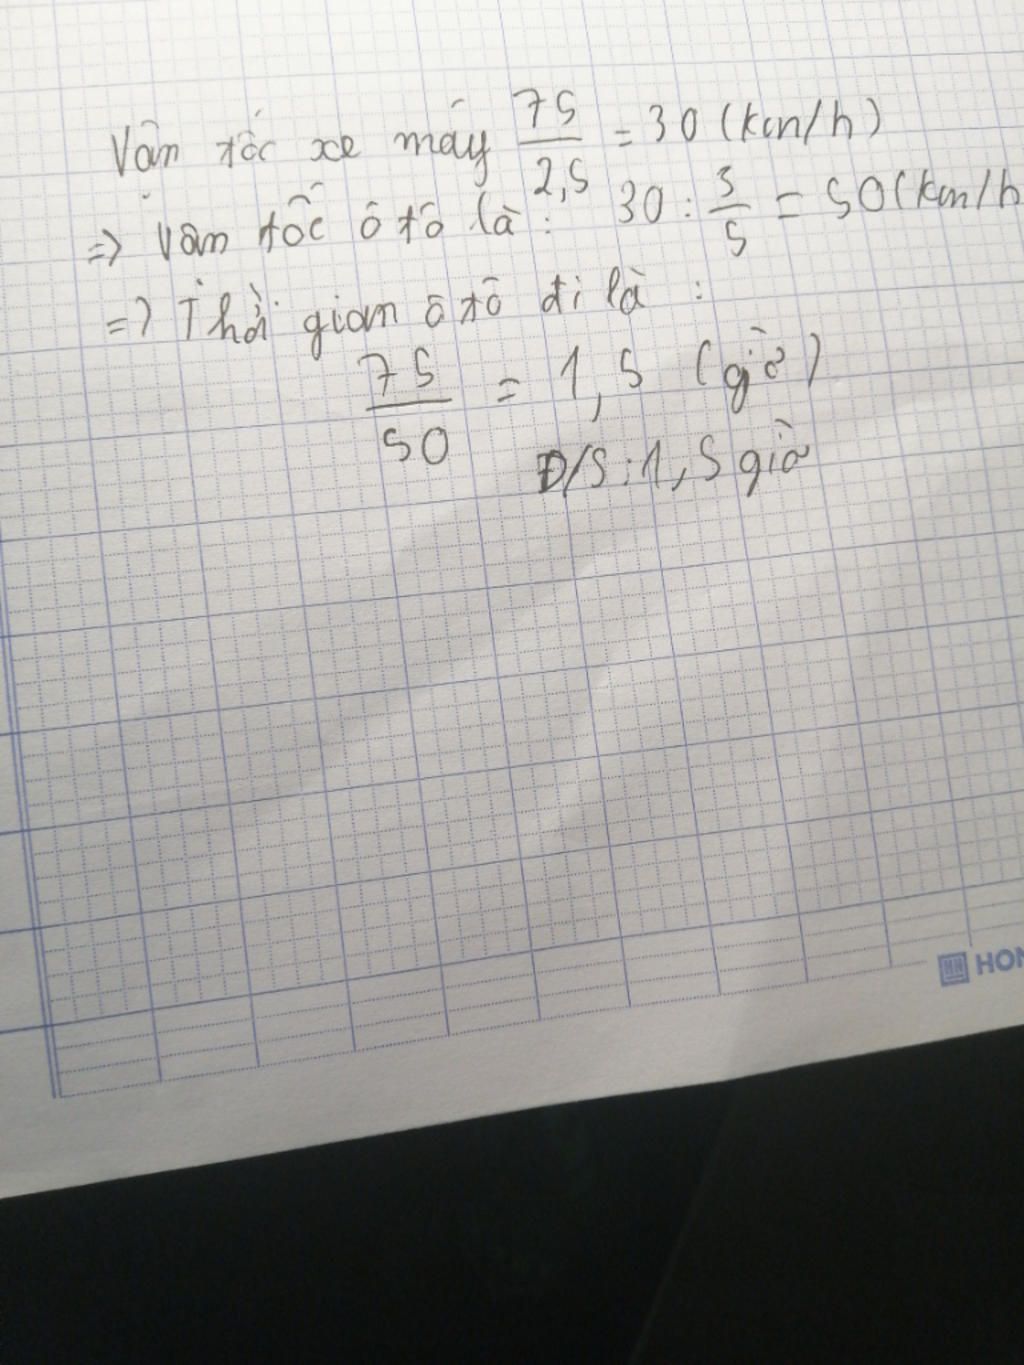 Vận tốc xe máy 75/2,5 = 30 (km/h)
=> Vận tốc ô tô là: 30 : 3/5 = 50 (km/h
=> Thời gian ô tô đi là :
75/50 = 1,5 (giờ)
Đ/S : 1,5 giờ
HON